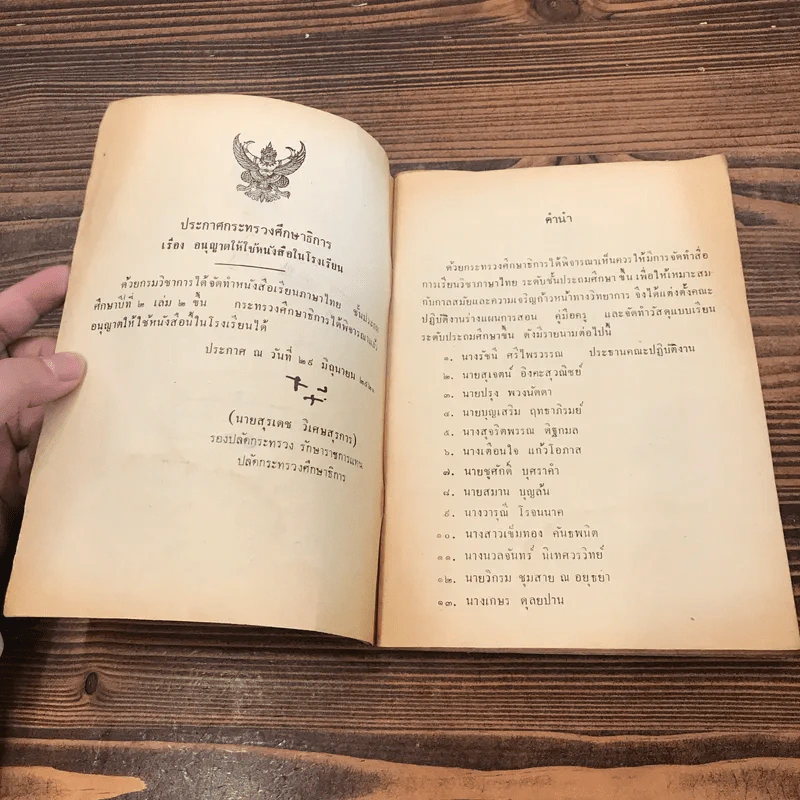 ประกาศกระทรวงศึกษาธิการ
เรื่อง อนุญาตให้ใช้หนังสือในโรงเรียน
ด้วยกรมวิชาการได้จัดทำหนังสือเรียนภาษาไทย ชั้นประถม
ศึกษาปีที่ ๒ เล่ม ๒ ขึ้น กระทรวงศึกษาธิการได้พิจารณาแล้ว
อนุญาตให้ใช้หนังสือนี้ในโรงเรียนได้
ประกาศ ณ วันที่ ๒๙ มิถุนายน
(นายสุรเดช วิเศษสุรการ)
รองปลัดกระทรวง รักษาราชการแทน
ปลัดกระทรวงศึกษาธิการ
คำนำ
ด้วยกระทรวงศึกษาธิการได้พิจารณาเห็นควรให้มีการจัดทำสื่อ
การเรียนวิชาภาษาไทย ระดับชั้นประถมศึกษา ขึ้น เพื่อให้เหมาะสม
กับกาลสมัยและความเจริญก้าวหน้าทางวิทยาการ จึงได้แต่งตั้งคณะ
ปฏิบัติงานร่างแผนการสอน คู่มือครู และจัดทำวัสดุแบบเรียน
ระดับประถมศึกษาขึ้น ดังมีรายนามต่อไปนี้
๑. นางรัชนี ศรีไพรวรรณ ประธานคณะปฏิบัติงาน
๒. นายสุเจตน์ อิงคะสุวณิชย์
๓. นายปรุง พวงนัดดา
๔. นายบุญเสริม ฤทธาภิรมย์
๕. นางสุจริตพรรณ ดิฐกมล
๖. นางเตือนใจ แก้วโอภาส
๗. นายชูศักดิ์ บุศราคำ
๘. นายสมาน บุญล้น
๙. นางวารุณี โรจนนาค
๑๐. นางสาวเข็มทอง คันธพนิต
๑๑. นางนวลจันทร์ นิเทศวรวิทย์
๑๒. นายวิกรม ชุมสาย ณ อยุธยา
๑๓. นางเกษร ดุลยปาน